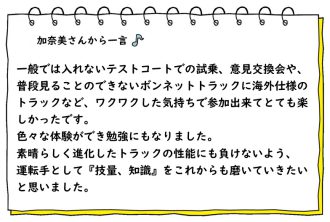 加奈美さんから一言♪
一般では入れないテストコートでの試乗、意見交換会や、
普段見ることのできないボンネットトラックに海外仕様の
トラックなど、ワクワクした気持ちで参加出来てとても楽
しかったです。
色々な体験ができ勉強にもなりました。
素晴らしく進化したトラックの性能にも負けないよう、
運転手として『技量、知識』をこれからも磨いていきたい
と思いました。